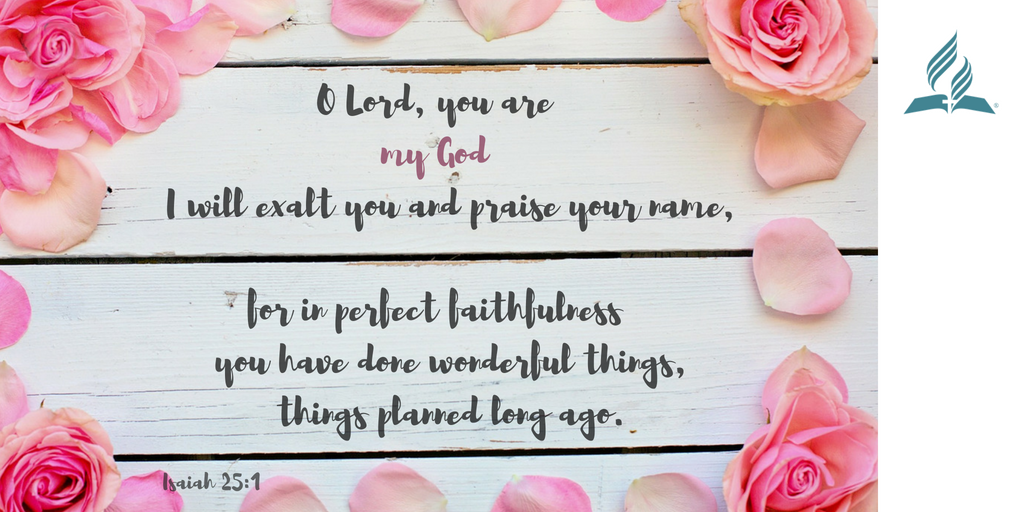 O Lord, you are
my God
I will exalt you and praise your name,
for in perfect faithfulness
you have done wonderful things,
things planned long ago.
Isaiah 25:1
®